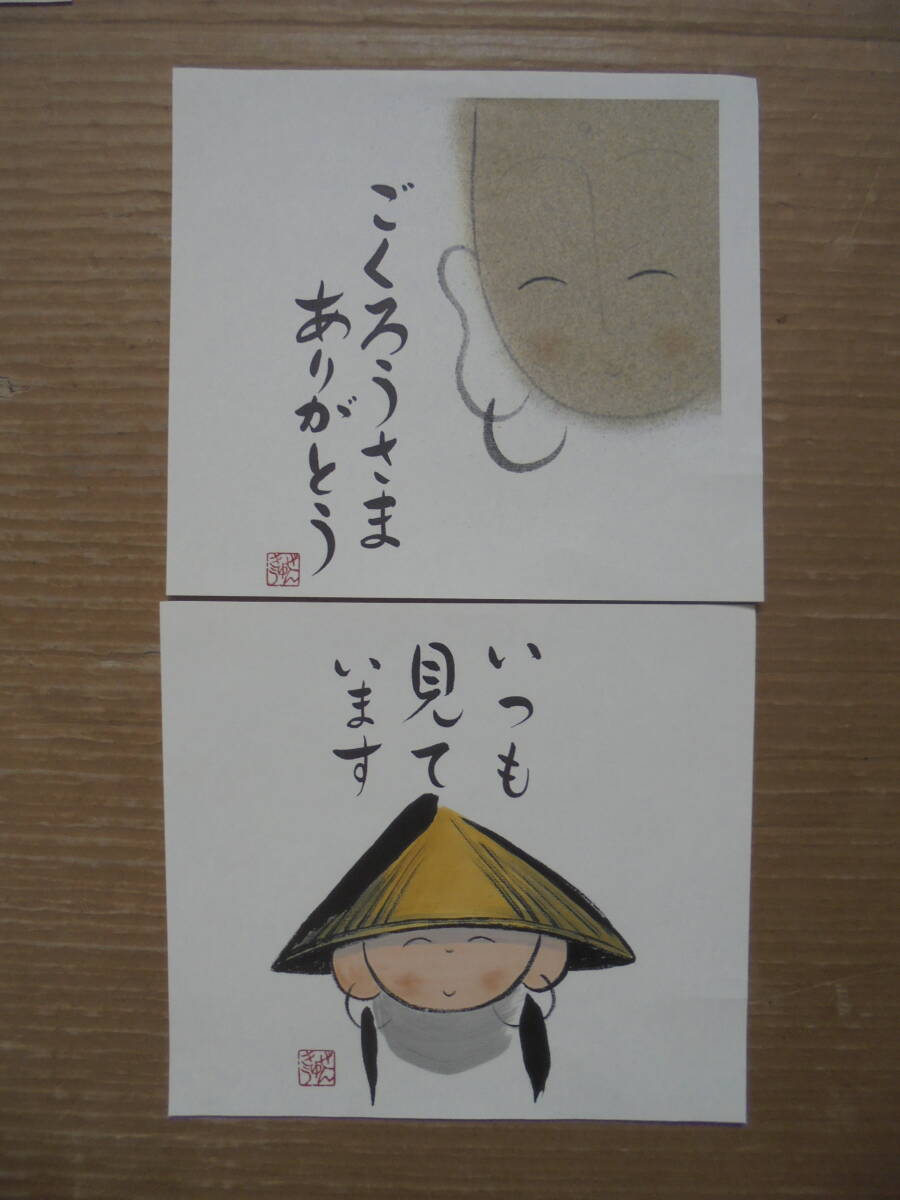 ごくろうさま
ありがとう
いつも
見て
います